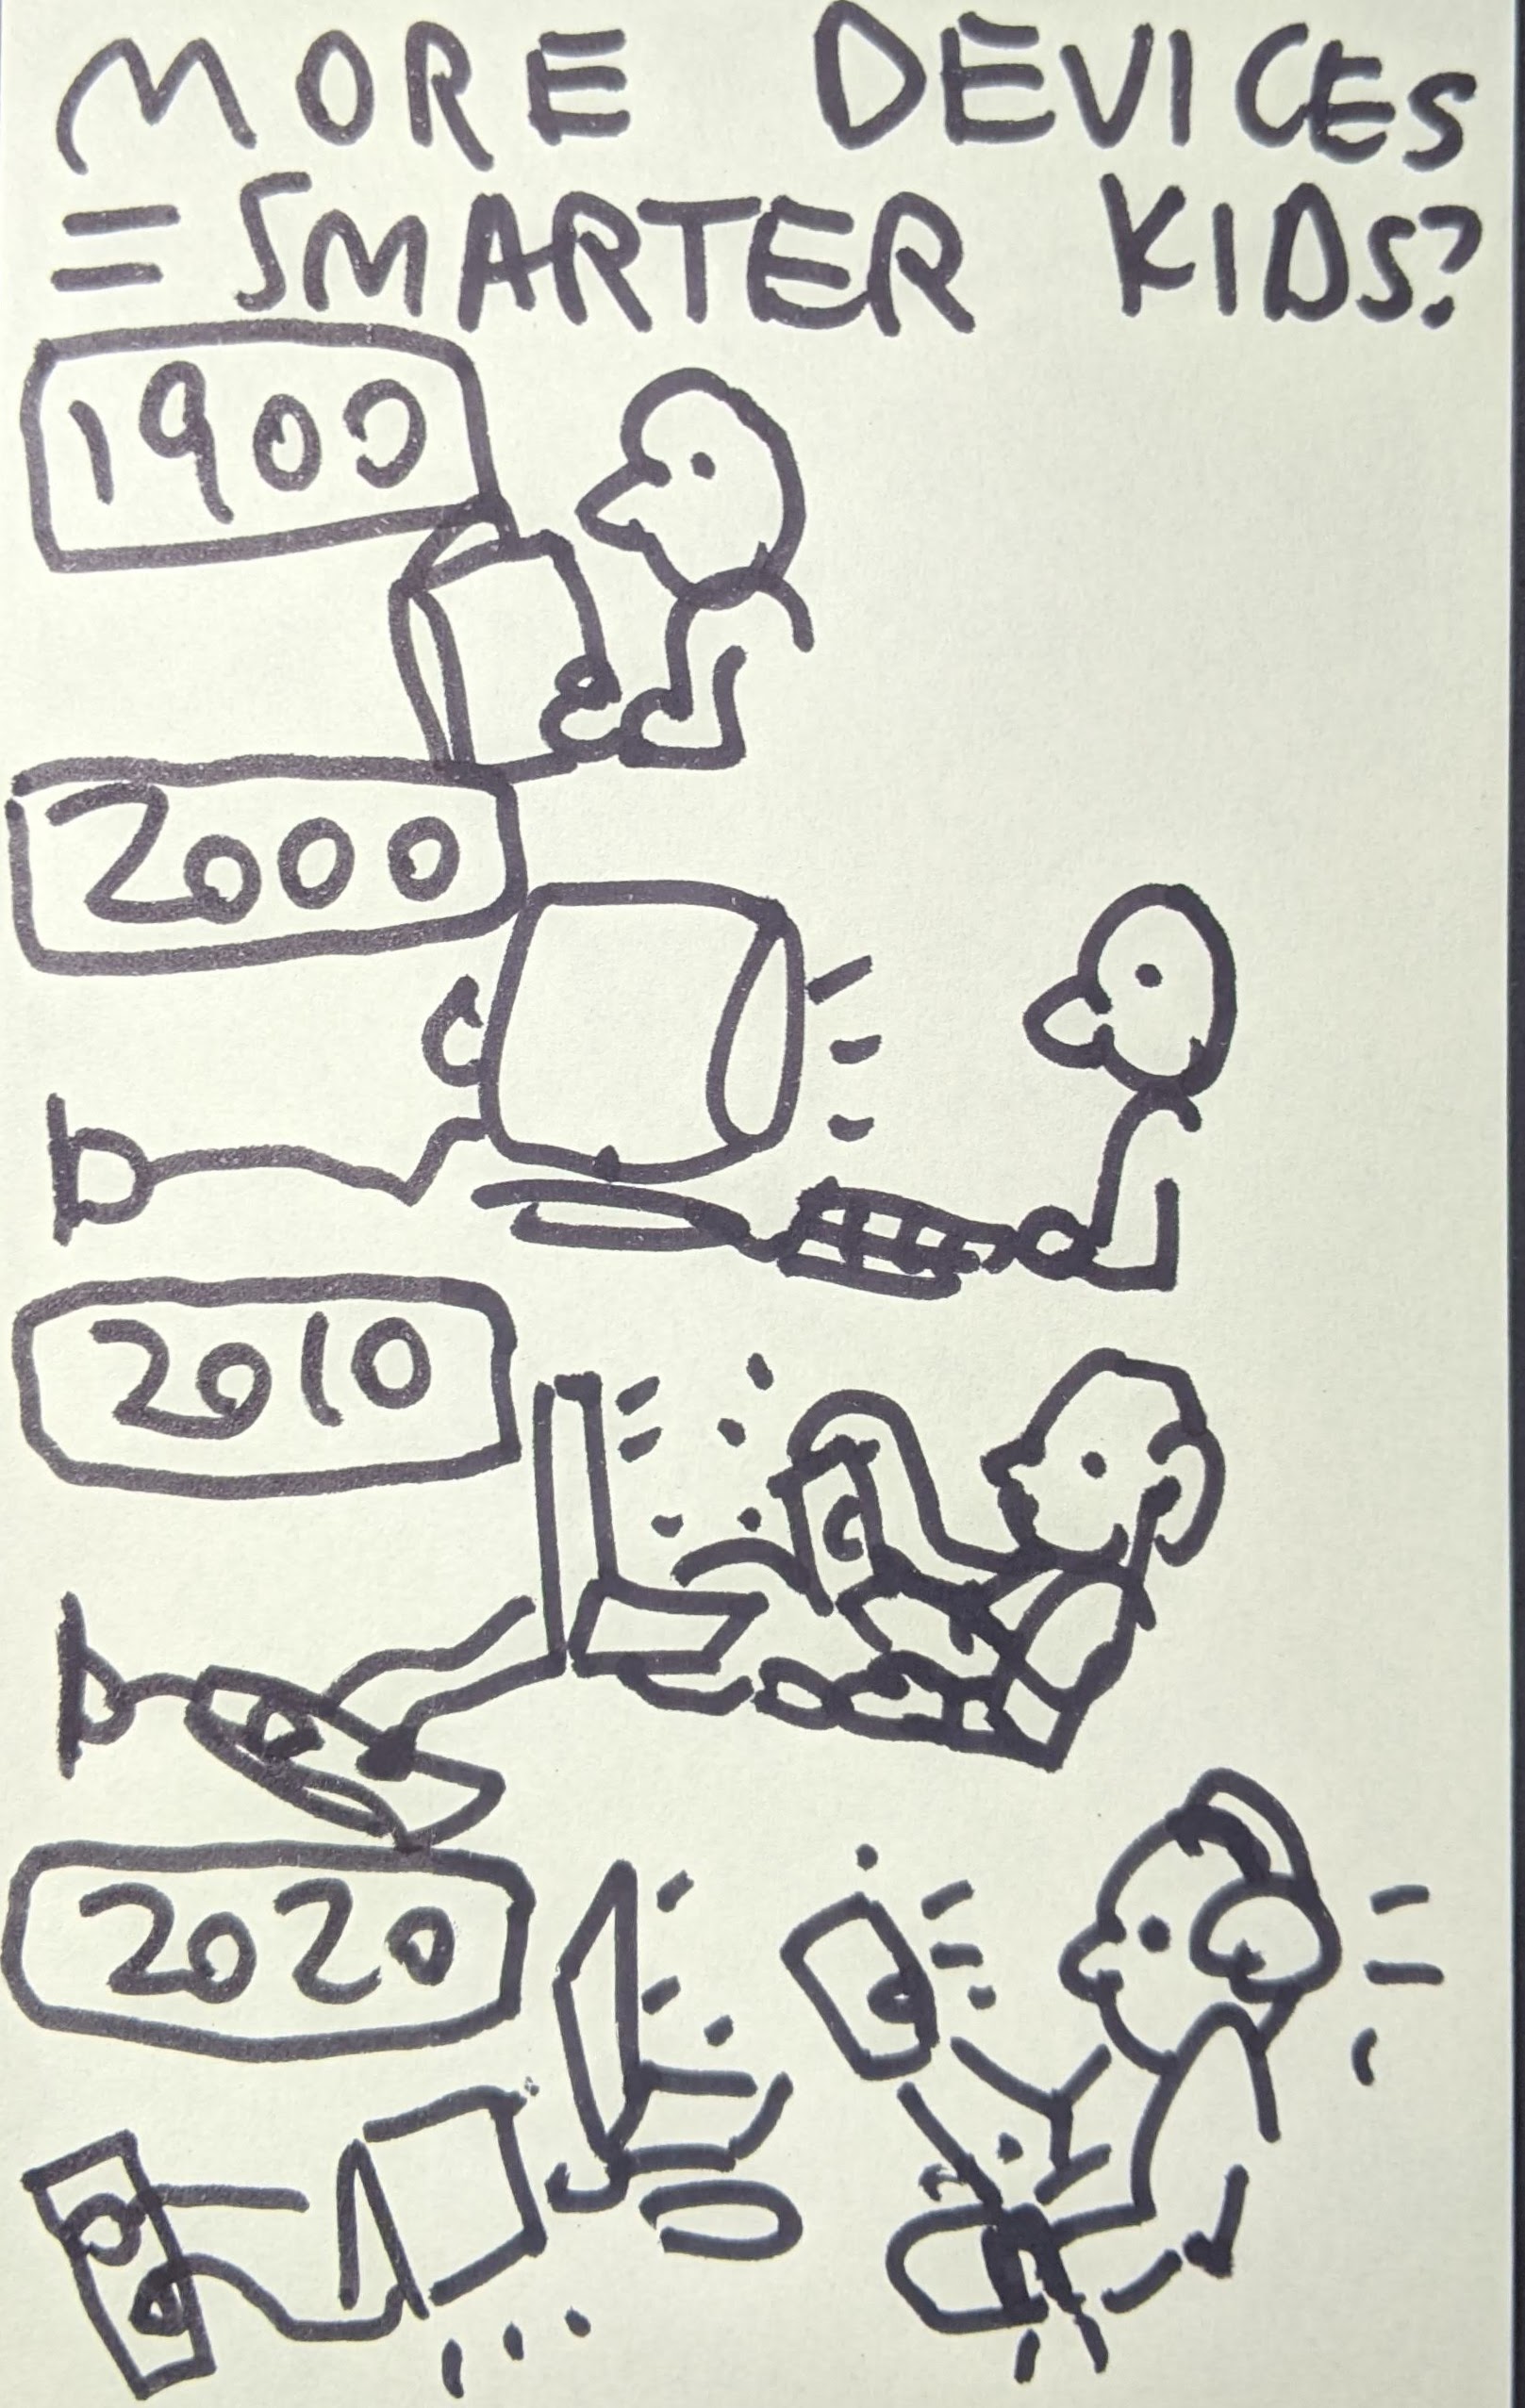 MORE DEVICES
= SMARTER KIDS?
1900
2000
2010
2020